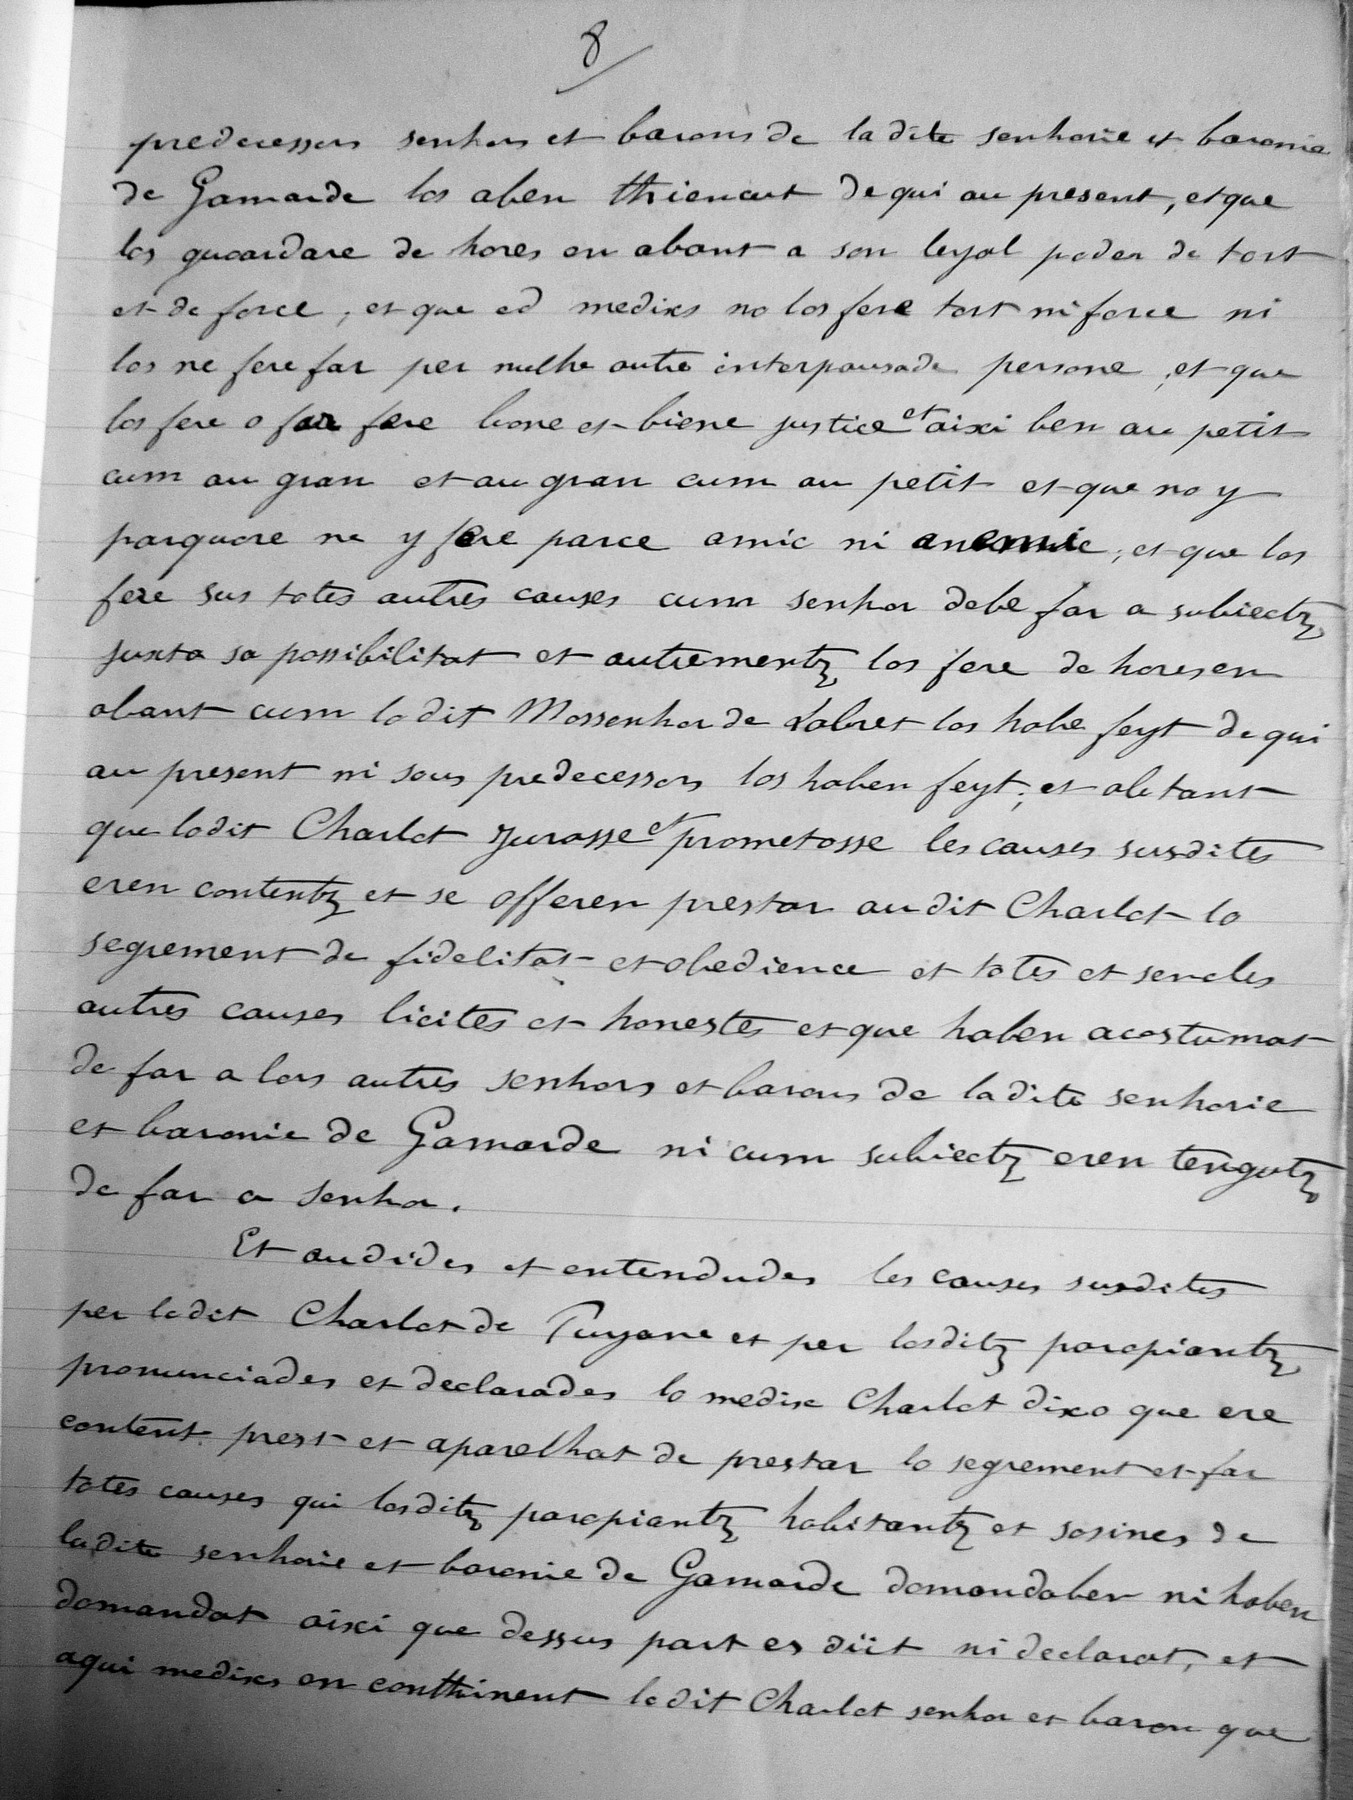 8
predecessors senhors et barons de la dite senhorie et baronie
de Gamarde los aben thiencut de qui au present, et que
los guoardare de hores en abant a son leyal poder de tort
et de force, et que ed medixs no los fere tort ni force ni
los ne fere far per nulhe autre interpausade persone, et que
los fere o far fere bone et biene justice et aixi ben au petit
cum au gran et au gran cum au petit et que no y
parquare ne y fere parce amic ni anemic, et que los
fere sus totes autres causes cum senhor debe far a subiectz
juxta sa possibilitat et autrementz los fere de hores en
abant cum lo dit Mossenhor de Labret los habe feyt de qui
au present ni sous predecessors los haben feyt; et abtant
que lodit Charlot jurasse et prometosse les causes susdites
eren contentz et se offeren prestar audit Charlot lo
segrement de fidelitat et obedience et totes et sencles
autres causes licites et honestes et que haben acostumat
de far a lors autres senhors et barons de ladite senhorie
et baronie de Gamarde ni cum subiectz eren tengutz
de far a senhor.
Et audides et entendudes les causes susdites
per lodit Charlot de Puyane et per losditz paropiantz
pronunciades et declarades lo medix Charlot dixo que ere
content prest et aparelhat de prestar lo segrement et far
totes causes qui losditz paropiantz habitantz et sosines de
ladite senhorie et baronie de Gamarde domandaben ni haben
domandat aixi que dessus part es diit ni declarat, et
aqui medixs en conthinent lodit Charlot senhor et baron que